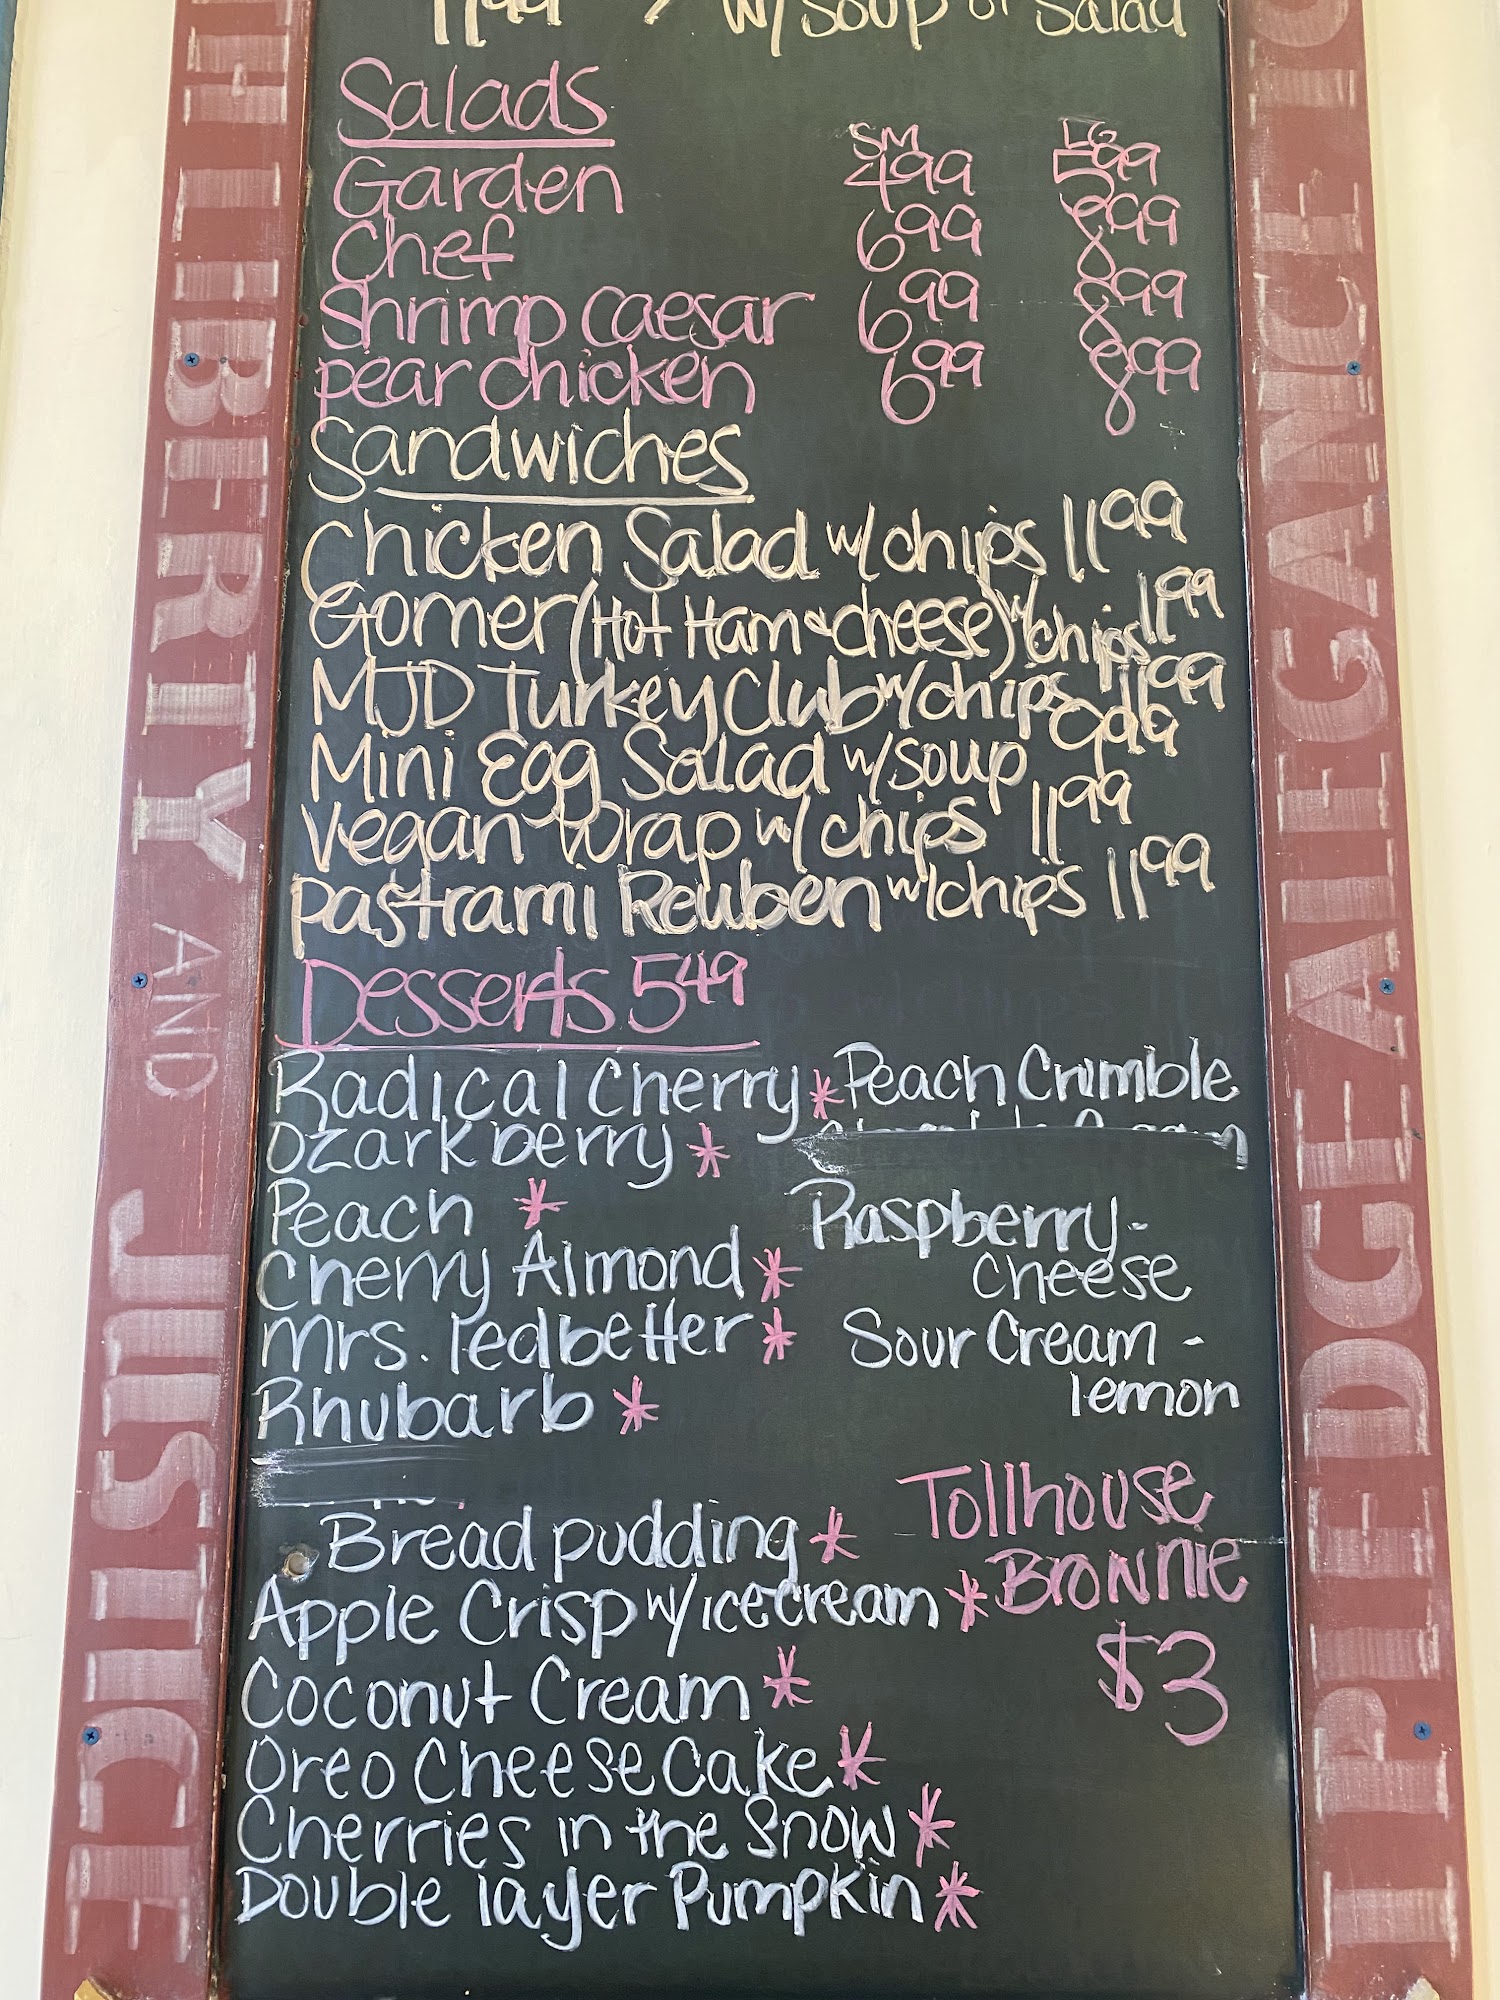 11.99 w/ soup or salad
Salads
SM LG
Garden 4.99 5.99
Chef 6.99 8.99
Shrimp Caesar 6.99 8.99
Pear chicken 6.99 8.99
Sandwiches
Chicken Salad w/chips 11.99
Gomer (Hot Ham & cheese) w/ chips 11.99
MJD Turkey Club w/chips 11.99
Mini Egg Salad w/soup 9.99
Vegan Wrap w/ chips 11.99
Pastrami Reuben w/chips 11.99
Desserts 5.49
Radical Cherry * Peach Crumble
Ozark berry *
Peach * Raspberry-
cheese
Cherry Almond *
Mrs. ledbetter * Sour Cream -
lemon
Rhubarb *
Bread pudding * Tollhouse
Brownie
$3
Apple Crisp w/ice cream *
Coconut Cream *
Oreo Cheese Cake *
Cherries in the Snow *
Double layer Pumpkin *
TH LIBERTY AND JUSTICE
PLEDGE ALLEGIANCE TO